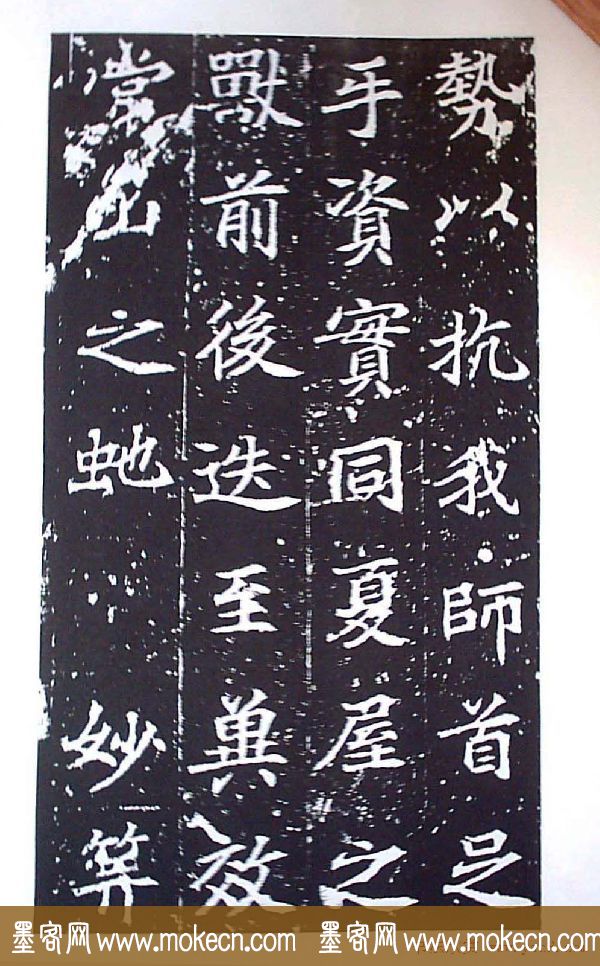 勢以抗我師首足
手資實同夏屋之
獸前後迭至兼效
常山之虵妙算
墨客网 www.mokecn.com 墨客网 www.mokecn.com